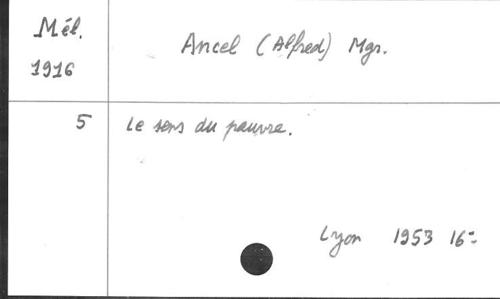 Mél. Ancel (Alfred) Mgr.
1916
5 Le sens du pauvre.
Lyon 1953 16º